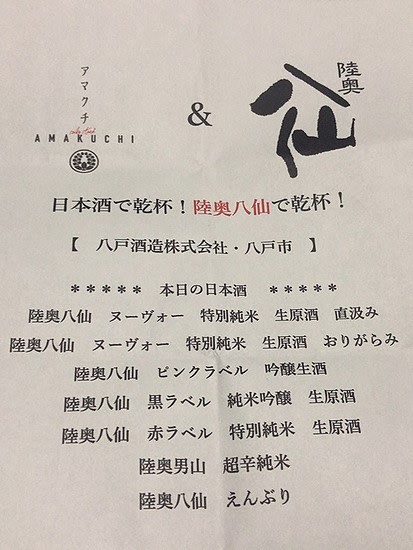 アマクチ
AMAKUCHI
&
陸奥
八仙
日本酒で乾杯！陸奥八仙で乾杯！
【 八戸酒造株式会社・八戸市 】
＊＊＊＊＊ 本日の日本酒 ＊＊＊＊＊
陸奥八仙 ヌーヴォー 特別純米 生原酒 直汲み
陸奥八仙 ヌーヴォー 特別純米 生原酒 おりがらみ
陸奥八仙 ピンクラベル 吟醸生酒
陸奥八仙 黒ラベル 純米吟醸 生原酒
陸奥八仙 赤ラベル 特別純米 生原酒
陸奥男山 超辛純米
陸奥八仙 えんぶり